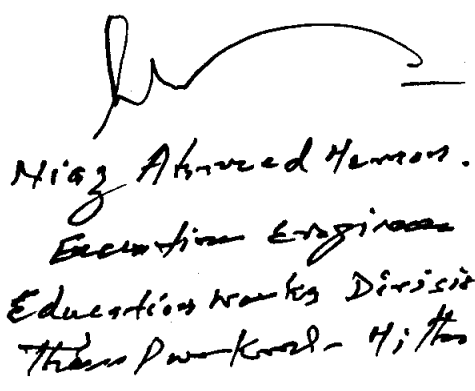 Niaz Ahmed Memon.
Executive Engineer
Education Works Divisi
Thar